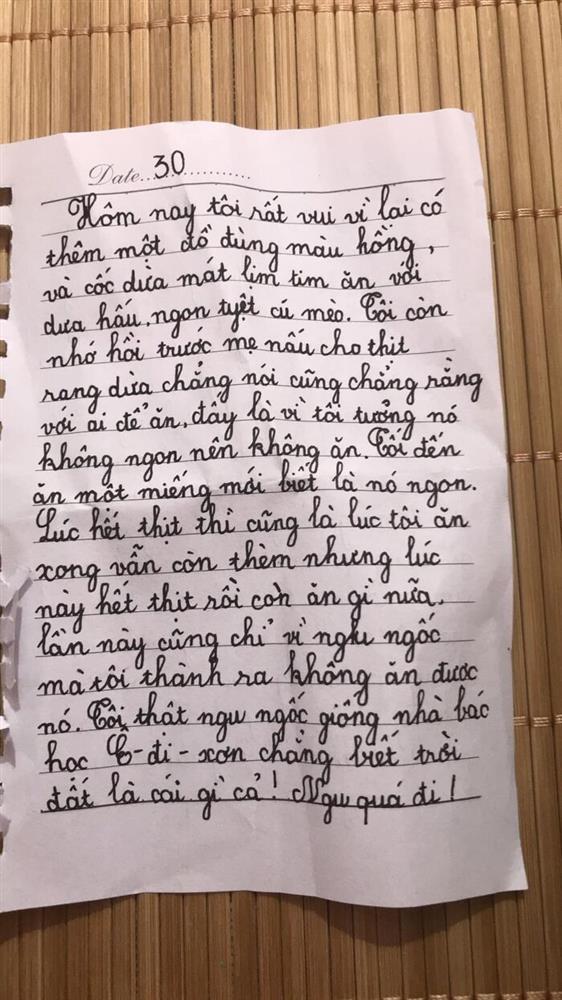 Date 30
Hôm nay tôi rất vui vì lai có
thêm một đồ đùng màu hồng,
và cốc dừa mát lim tim ăn với
dưa hấu, ngon tuyệt cú mèo. Tôi còn
nhớ hồi trước mẹ nấu cho thịt
rang dừa chẳng nói cũng chẳng rằng
với ai để ăn, đấy là vì tôi tưởng nó
không ngon nên không ăn. Tối đến
ăn một miếng mới biết là nó ngon.
Lúc hết thịt thì cũng là lúc tôi ăn
xong vẫn còn thèm nhưng lúc
này hết thịt rồi còn ăn gì nữa.
lần này cũng chỉ vì ngu ngốc
mà tôi thành ra không ăn được
nó. Tôi thật ngu ngốc giống nhà bác
học Ê-đi-xơn chẳng biết trời
đất là cái gì cả! Ngu quá đi!